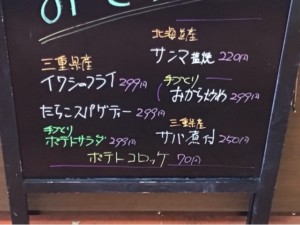 三重県産
イワシのフライ 299円
たらこスパゲティー 299円
手づくり
ポテトサラダ 299円
北海道産
サンマ塩焼 220円
手づくり
おから炒め 299円
三重県産
サバ煮付 250円
ポテトコロッケ 70円